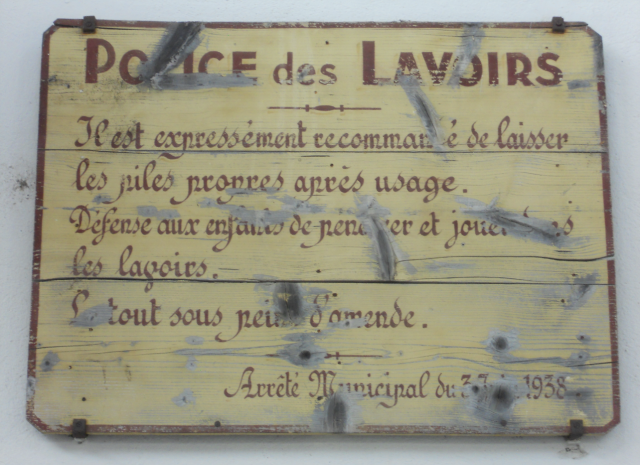 POLICE des LAVOIRS
Il est expressément recommandé de laisser
les piles propres après usage.
Défense aux enfants de pénétrer et jouer dans
les lavoirs.
Le tout sous peine d'amende.
Arrêté Municipal du 1938